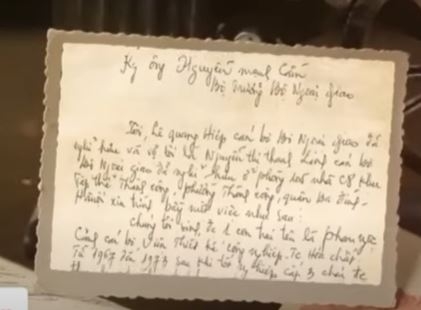 Kg ông Nguyễn mạnh Cầm
Bộ trưởng Bộ Ngoại giao
Tôi, Lê quang Hiệp cán bộ Bộ Ngoại giao đã
nghỉ hưu và vợ tôi là Nguyễn thị thanh cán bộ
Bộ Ngoại giao đã nghỉ hưu ở phòng nhà C8 khu
tập thể Thành công, phường Thành công, quận Ba đình
Hà nội xin trình bày một việc như sau:
Chúng tôi có 1 con trai tên là
cán bộ Viện Thiết kế công nghiệp hóa chất
Từ 1967 đến 1973 sau khi tốt nghiệp cấp 3